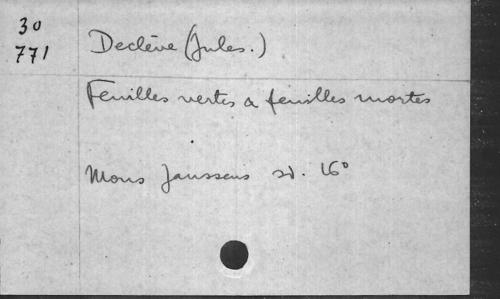 30
771
Declève (Jules.)
Feuilles vertes & feuilles mortes
Mons Janssens sd. 16°